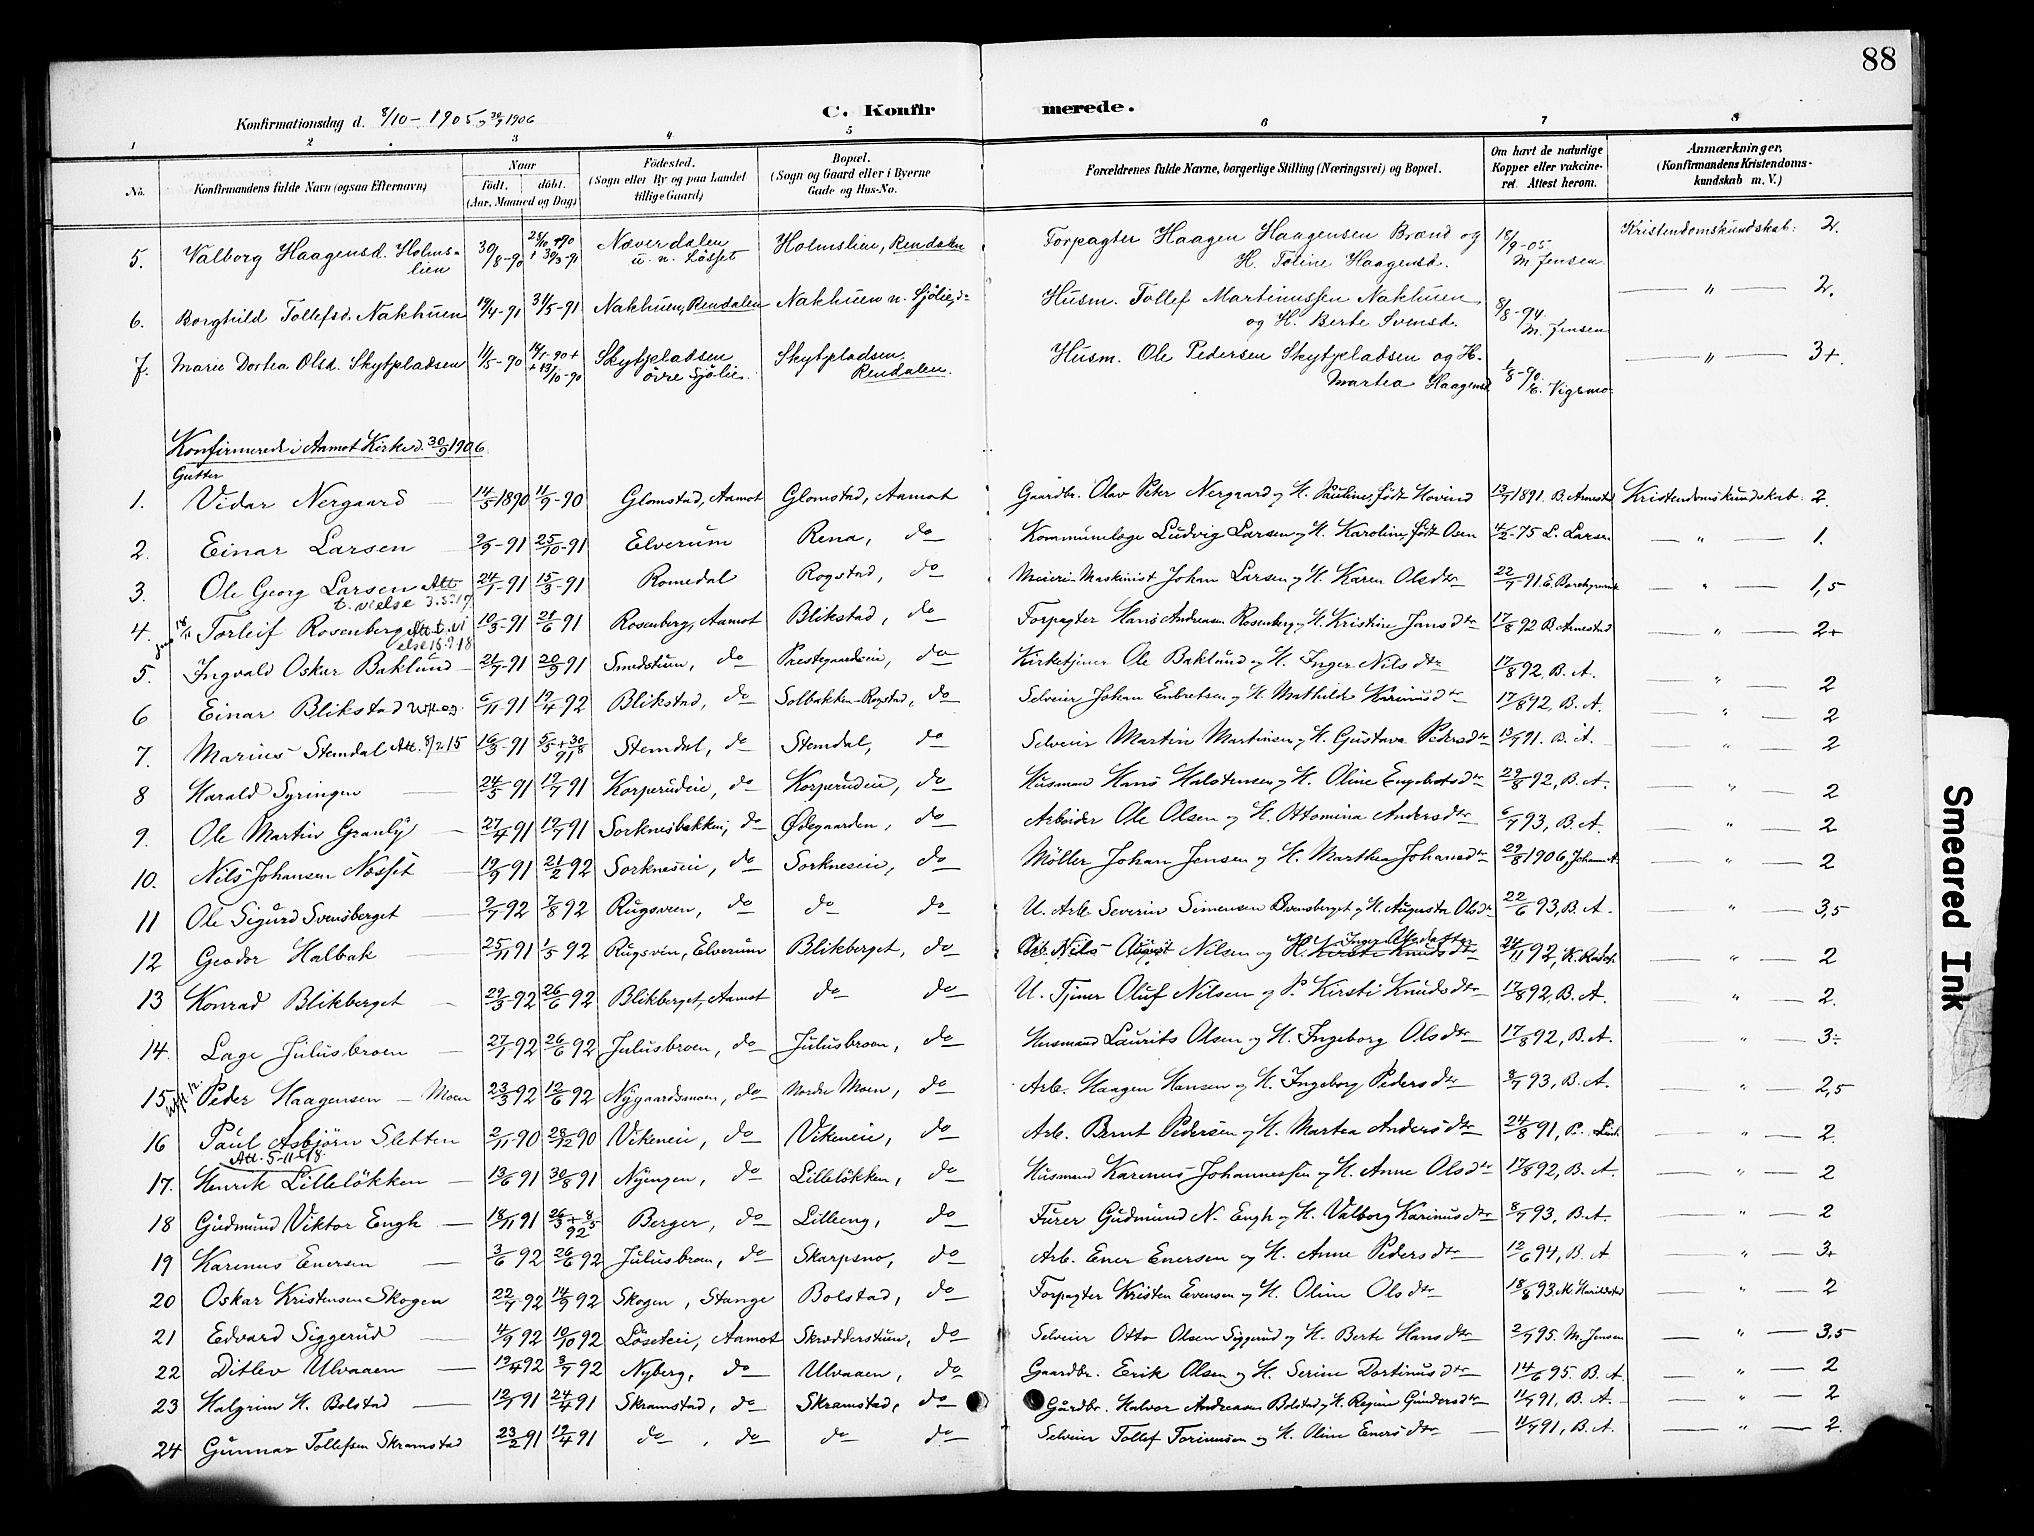 88
Konfirmationsdag d. 8/10 - 1905, 30/9 1906
C. Konfirmerede.
1 2 3 4 5 6 7 8
No. Konfirmandens fulde Navn (ogsaa Efternavn) Naar Födt. döbt. (Aar, Maaned og Dag) Födested. (Sogn eller By og paa Landet tillige Gaard) Bopæl. (Sogn og Gaard eller i Byerne Gade og Hus-No. Forældrenes fulde Navne, borgerlige Stilling (Næringsvei) og Bopæl. Om havt de naturlige Kopper eller vakcineret. Attest herom. Anmærkninger, (Konfirmandens Kristendomskundskab m. V.)
5. Valborg Haagensd. Holmslien 30/8-90 26/10 90 + 30/3-91 Næverdalen u. n. Løsset Holmslien, Rendalen Forpagter Haagen Haagensen Brænd og H. Toline Haagensd. 18/9-05. M. Jensen Kristendomskundskab: 2.
6. Borghild Tollefsd. Nakhuen 19/4-91 31/5-91 Nakhuen, Rendalen Nakhuen n. Sjölie, do Husm. Tollef Martinussen Nakhuen og H. Berte Svensd. 8/8-94. M. Jensen — " — 2.
7. Marie Dortea Olsd. Skytpladsen 11/5-90 14/5-90 + 13/10-90 Skytpladsen övre Sjölie Skytpladsen Rendalen. Husm. Ole Pedersen Skytpladsen og H. Martea Haagensd. 1/8-90. E. Vigsmo — " — 3+.
Konfirmerede i Aamot Kirke d. 30/9 1906
Gutter
1. Vidar Nergaard — 14/5 1890 11/9-90 Glomstad, Aamot Glomstad, Aamot Gaardbr. Olav Peter Nergaard og H. Pauline, født Hovind 13/7 1891. B. Arnestad Kristendomskundskab: 2.
2. Einar Larsen — 2/9-91 25/10-91 Elverum Rena, do Kommunelæge Ludvig Larsen og H. Karoline, født Osen 4/2-75 L. Larsen — " — 1.
3. Ole Georg Larsen Att. t. vielse 3.5.17 24/1-91 15/3-91 Romedal Rogstad, do Meieri-Maskinist Johan Larsen og H. Karen Olsdtr 22/7-91 E. — " — 1,5
4. Torleif Rosenberg Att. t. vielse 18.9.18 10/3-91 21/6 91 Rosenberg, Aamot Blikstad, do Forpagter Hans Andreasen Rosenberg og H. Kristine Jansdtr 17/8 92 B. Arnestad — " — 2+
5. Ingvald Oskar Baklund — 21/7-91 20/9 91 Smedstuen, do Prestegaardseie, do Kirketjener Ole Baklund og H. Inger Nilsdtr 17/8 92, B. A. — " — 2
6 Einar Blikstad 6/11-91 19/4-92 Blikstad, do Solbakken-Rogstad, do Selveier Johan Enbretsen og H. Mathilde Karinusdtr 17/8 92, B. A. — " — 2
7. Marius Stemdal Att. 8/2 15 16/3-91 5/5 + 30/8 91 Stemdal, do Stemdal, do Selveier Martin Martinsen og H. Gustava Pedersdtr 13/7 91. B. A. — " — 2
8 Harald Syringen — 24/5 91 19/7 91 Korperudeie, do Korperudeie, do Husmand Hans Halstensen og H. Oline Engebretsdtr 29/8 92, B. A. — " — 2
9. Ole Martin Granly — 27/4 91 19/7 91 Sorknesbakken, do Ødegaarden, do Arbeider Ole Olsen og H. Ottomina Andersdtr 6/7 93, B. A. — " — 2
10. Nils Johansen Nosset — 19/9 91 21/2 92 Sorkneseie, do Sorkneseie, do Møller Johan Jensen og H. Marthea Johansdtr 29/8 1906, — " — 2
11 Ole Sigurd Svensberget — 2/7 92 7/8 92 Rugsveen, do do do U. Arb. Severin Simensen Svensberget og H. Augusta Olsdtr 22/6 93, B. A. — " — 3,5
12 Geodor Halbak — 25/11 91 1/5 92 Rugsvén, Elverum Blikberget, do Arb. Nils August Nilsen og H. Kirsti Knudsdtr Inger Olsdatter 24/11 92, — " — 2
13 Konrad Blikberget — 29/3-92 26/6 92 Blikberget, Aamot do do U. Tjener Oluf Nilsen og P. Kirsti Knudsdtr 17/8 92, B. A. — " — 2.
14. Lage Julusbroen — 27/1-92 26/6 92 Julusbroen, do Julusbroen, do Husmand Laurits Olsen og H. Ingeborg Olsdtr 17/8 92, B. A. — " — 3÷
15 Peder Haagensen - Moen 23/3 92 12/6 92 Nygaardsmoen, do Nordre Moen, do Arb. Haagen Hansen og H. Ingeborg Pedersdtr 8/7 93, B. A. — " — 2,5
16 Paul Asbjörn Sletten Att. 5-11-18. 2/11-90 28/12 90 Vikeneie, do Vikeneie, do Arb. Bernt Pedersen og H. Martea Andersdtr 24/8 91, — " — 2.
17. Henrik Lilleløkken — 13/6 91 30/8 91 Nyengen, do Lilleløkken, do Husmand Karenus Johannessen og H. Anne Olsdtr 17/8 92, B. A. — " — 2
18 Gudmund Viktor Engh — 18/11 91 26/3 + 8/5 92 Berger, do Lilleeng, do Furer Gudmund N. Engh og H. Valborg Karinusdtr 8/7 93, B. A. — " — 2
19 Karenus Enersen — 3/6 92 26/6 92 Julusbroen, do Skarpsno, do Arb. Ener Enersen og H. Anne Pedersdtr 12/6 94, B. A — " — 3+
20 Oskar Kristensen Skogen 22/7-92 14/9 92 Skogen, Stange Bolstad, do Forpagter Kristen Evensen og H. Oline Olsdtr 18/8 93 — " — 2
21 Edvard Siggerud — 4/9 92 10/10 92 Løseteie, Aamot Skrædderstuen, do Selveier Otto Olsen Siggerud og H. Berte Hansdtr 2/7 95. M. Jensen — " — 3,5
22 Ditlev Ulvaaen — 19/4 92 3/7 92 Nyberg, do Ulvaaen, do Gaardbr. Erik Olsen og H. Serine Dortinusdtr 14/6 95. B. A. — " — 2
23 Halgrim H. Bolstad — 12/1 91 24/4 91 Skramstad, do Skramstad, do Gårdbr. Halvor Andreasen Bolstad og H. Regine Gundersdtr 11/7 91, B. A. — " — 2
24 Gunnar Tollefsen Skramstad 23/2 91 19/4 91 do, do do do Selveier Tollef Torinusen og H. Oline Enersdtr 11/7 91, B. A. — " — 2.
Smeared Ink